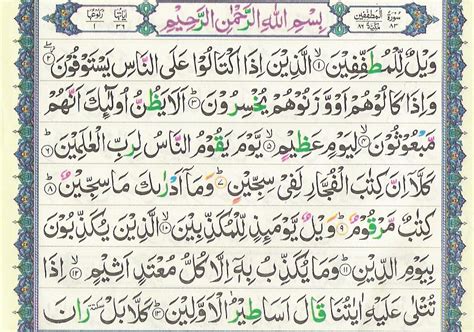 سُوْرَةُ الْمُطَفِّفِيْنَ
بِسْمِ اللّٰهِ الرَّحْمٰنِ الرَّحِيْمِ
اٰيَاتُهَا ٣٦ رُكُوْعُهَا ١
وَيْلٌ لِّلْمُطَفِّفِيْنَ ۙ﴿۱﴾ الَّذِيْنَ اِذَا اكْتَالُوْا عَلَى النَّاسِ يَسْتَوْفُوْنَ ۖ﴿۲﴾
وَاِذَا كَالُوْهُمْ اَوْ وَّزَنُوْهُمْ يُخْسِرُوْنَ ؕ﴿۳﴾ اَلَا يَظُنُّ اُولٰٓئِكَ اَنَّهُمْ
مَّبْعُوْثُوْنَ ۙ﴿۴﴾ لِيَوْمٍ عَظِيْمٍ ۙ﴿۵﴾ يَّوْمَ يَقُوْمُ النَّاسُ لِرَبِّ الْعٰلَمِيْنَ ؕ﴿۶﴾
كَلَّاۤ اِنَّ كِتٰبَ الْفُجَّارِ لَفِيْ سِجِّيْنٍ ؕ﴿۷﴾ وَمَاۤ اَدْرٰىكَ مَا سِجِّيْنٌ ؕ﴿۸﴾
كِتٰبٌ مَّرْقُوْمٌ ؕ﴿۹﴾ وَيْلٌ يَّوْمَئِذٍ لِّلْمُكَذِّبِيْنَ ۙ﴿۱۰﴾ الَّذِيْنَ يُكَذِّبُوْنَ
بِيَوْمِ الدِّيْنِ ؕ﴿۱۱﴾ وَمَا يُكَذِّبُ بِهٖۤ اِلَّا كُلُّ مُعْتَدٍ اَثِيْمٍ ۙ﴿۱۲﴾ اِذَا
تُتْلٰى عَلَيْهِ اٰيٰتُنَا قَالَ اَسَاطِيْرُ الْاَوَّلِيْنَ ؕ﴿۱۳﴾ كَلَّا بَلْ سكتة رَانَ